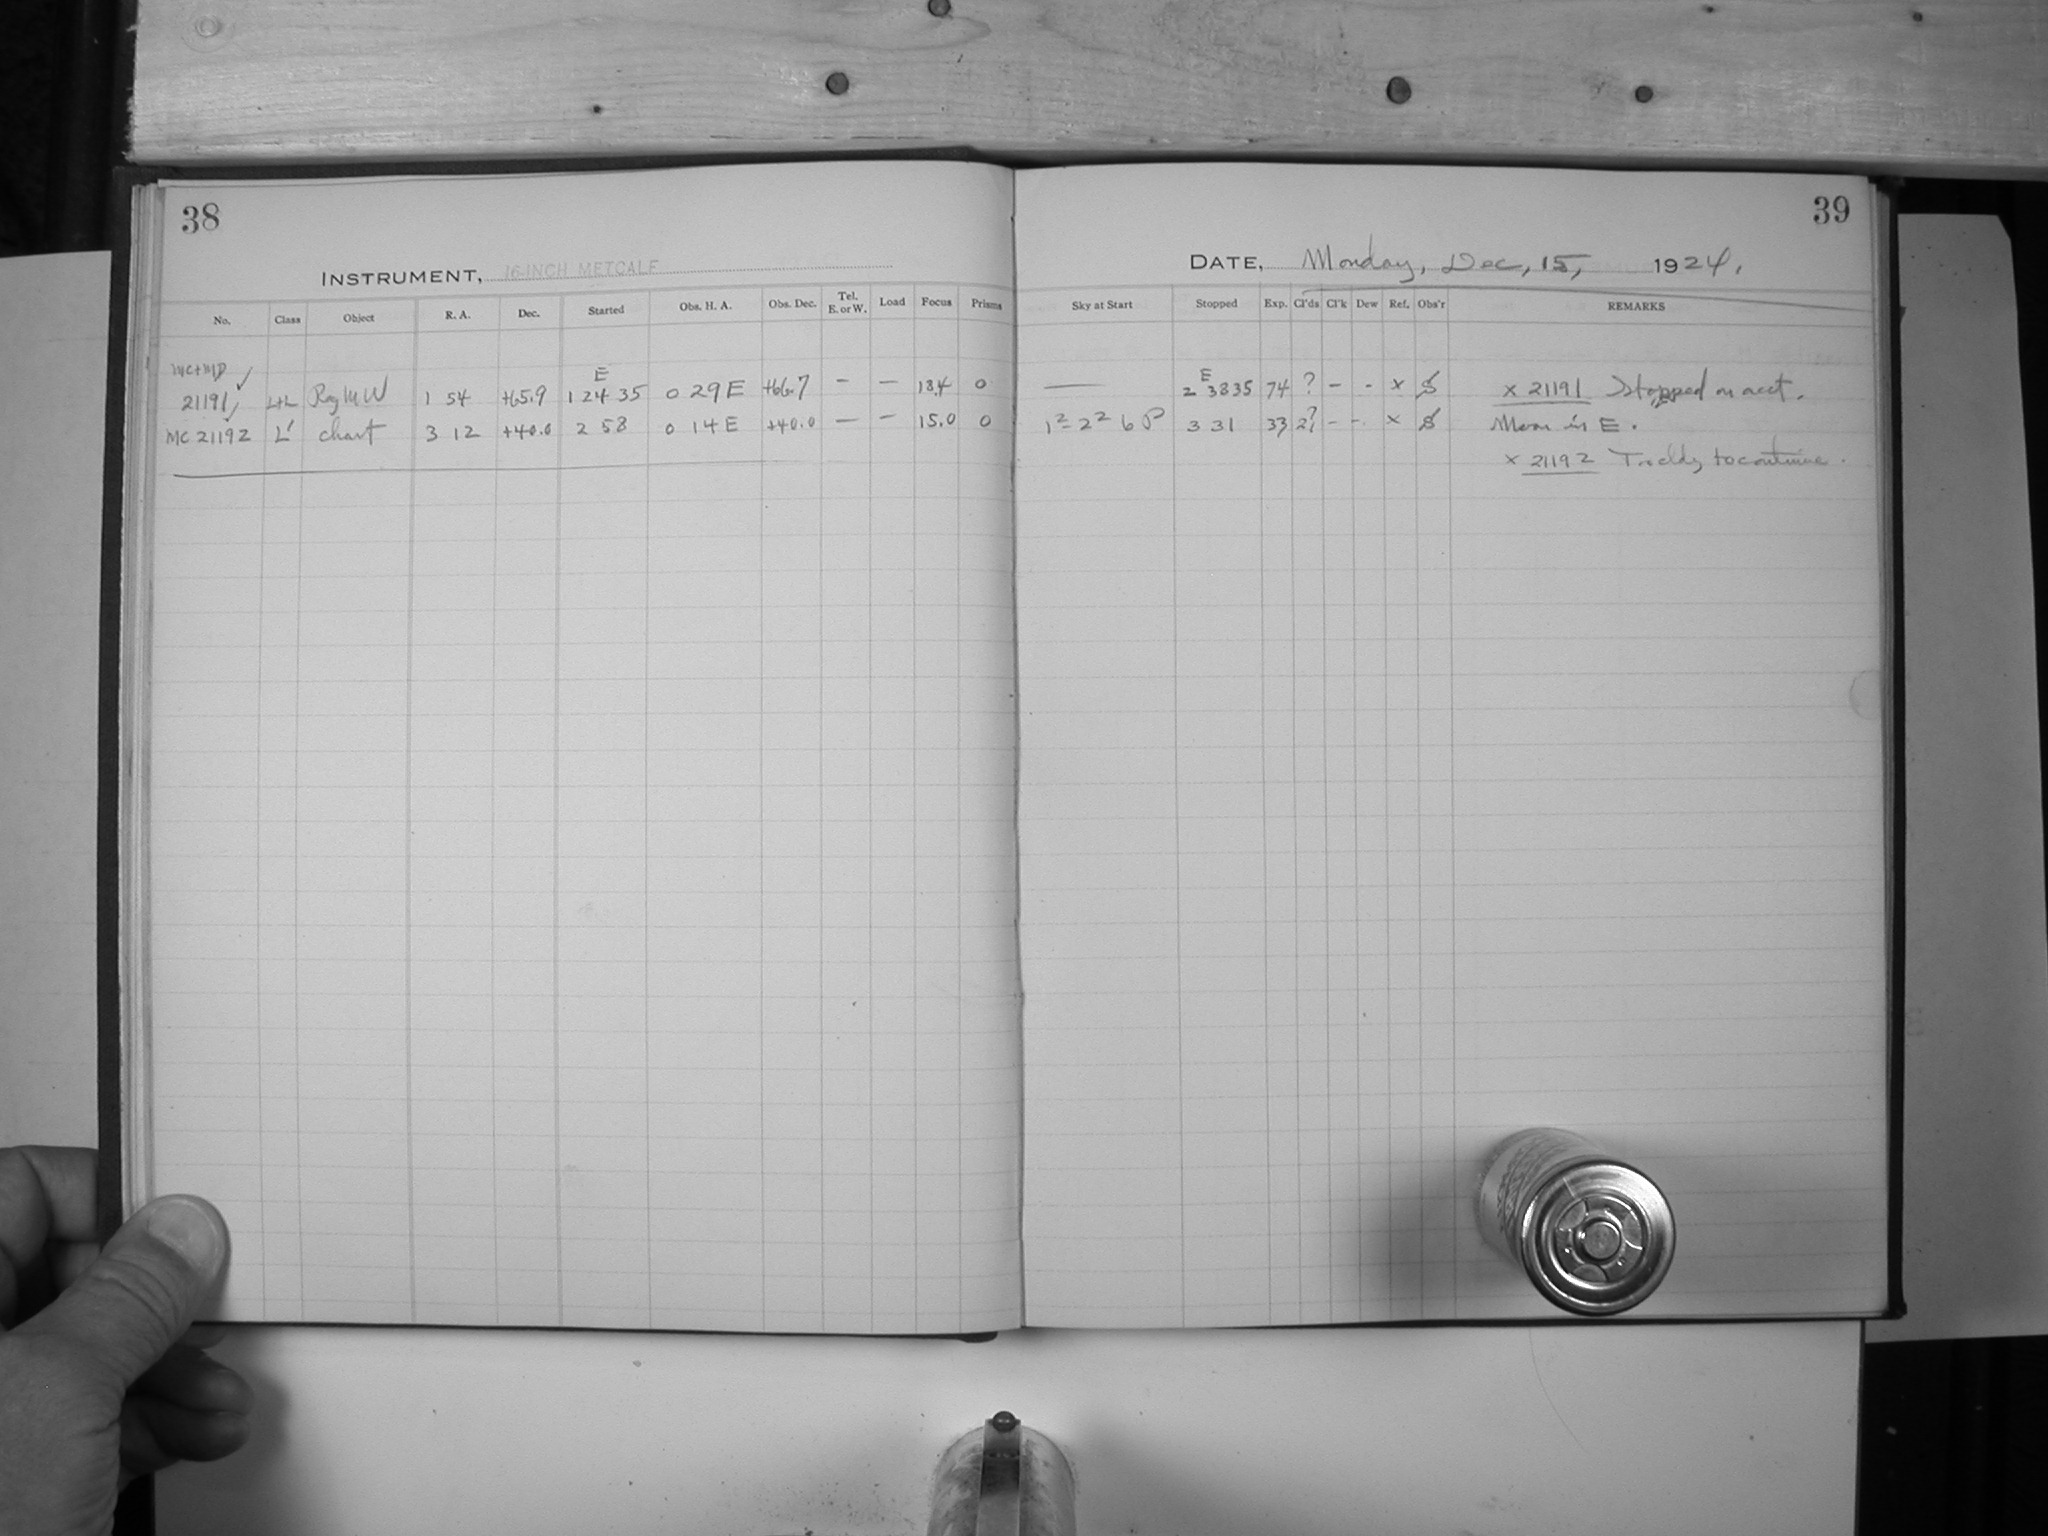 38
INSTRUMENT, 16-INCH METCALF
No. Class Object R. A. Dec. Started Obs. H. A. Obs. Dec. Tel. E. or W. Load Focus Prisms
MC+MD
E
21191 L+L Ray M W 1 54 +65.9 1 24 35 0 29 E +66.7 – – 13.4 0
MC 21192 L' chart 3 12 +40.0 2 58 0 14 E +40.0 – – 15.0 0
39
DATE, Monday, Dec, 15, 1924.
Sky at Start Stopped Exp. Cl'ds Cl'k Dew Ref. Obs'r REMARKS
E
— 2 38 35 74 ? – - x S x 21191 Stopped on acct.
1² 2² 6 P 3 31 33 2? – - x S Moon in E.
x 21192 Too cldy to continue.